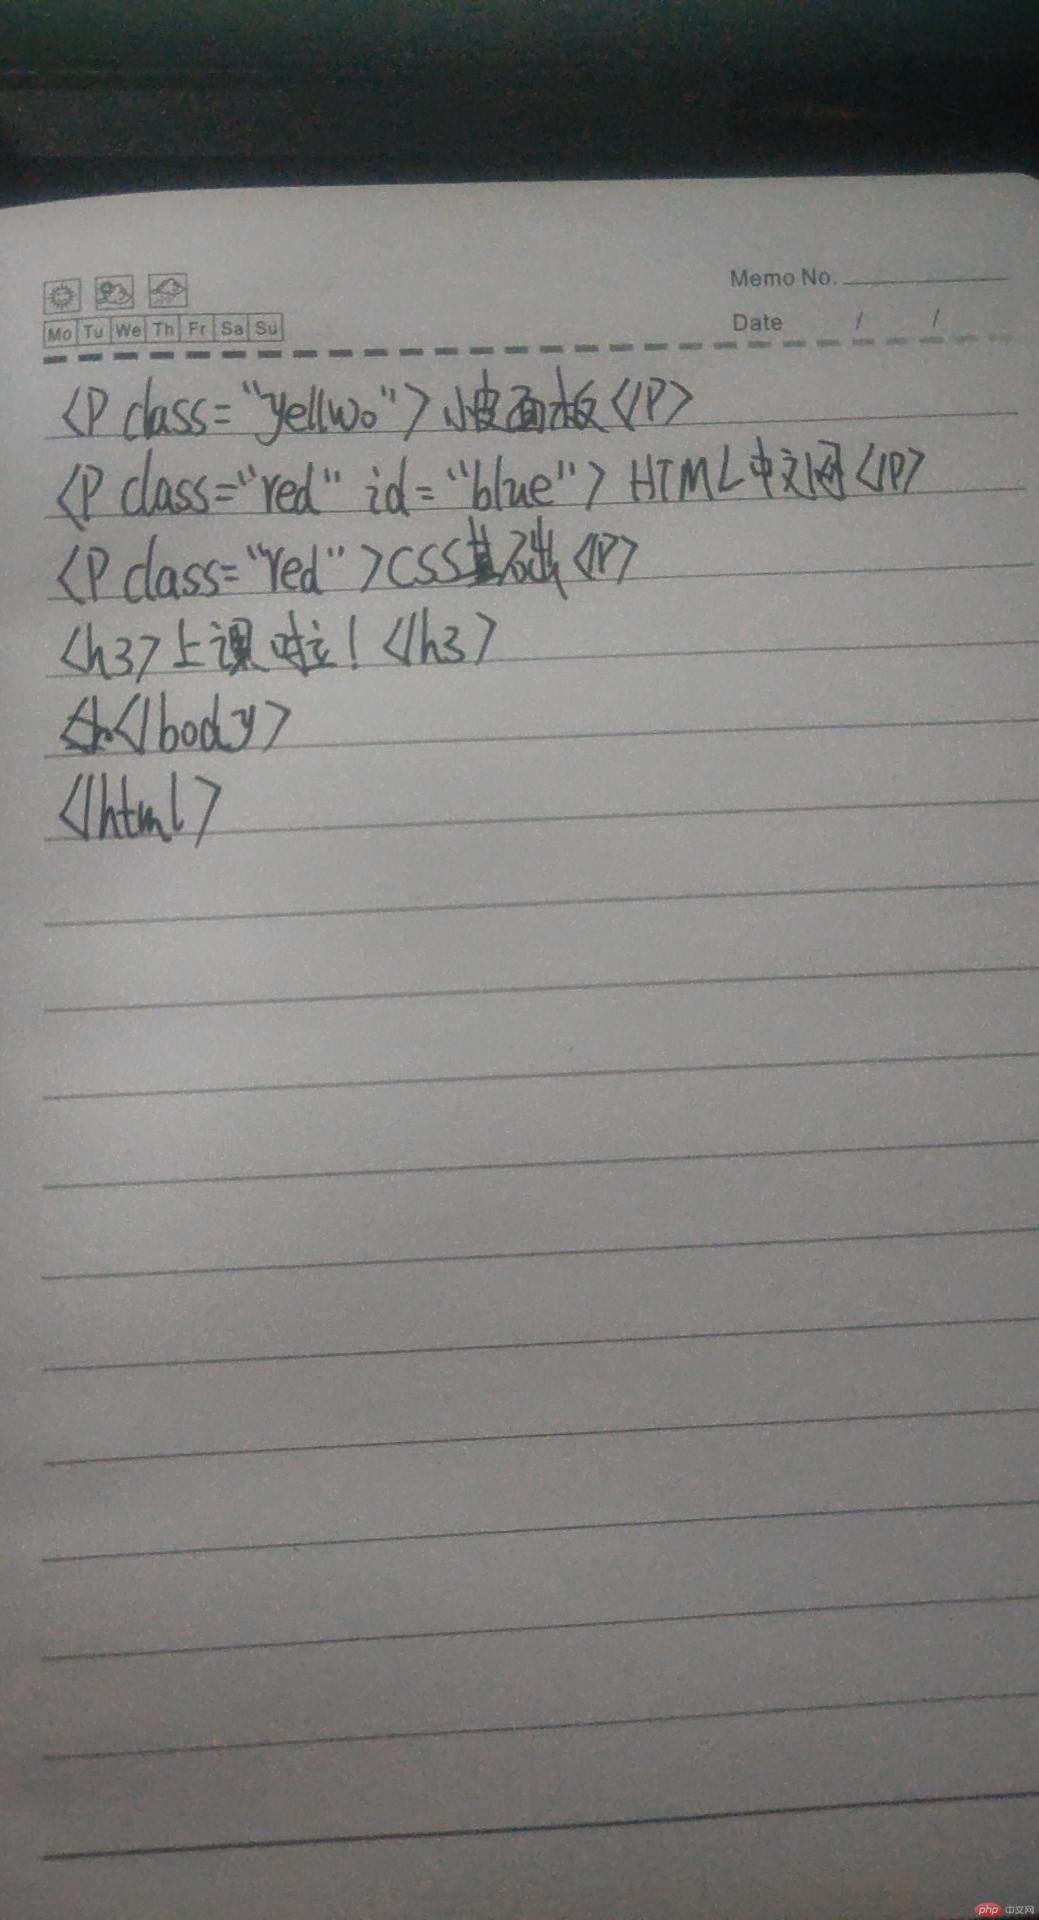 Memo No.
Mo Tu We Th Fr Sa Su
Date / /
<P class="yellwo">小皮面板</P>
<P class="red" id="blue">HTML中文网</P>
<P class="red">CSS基础</P>
<h3>上课啦！</h3>
</body>
</html>
php 中文网